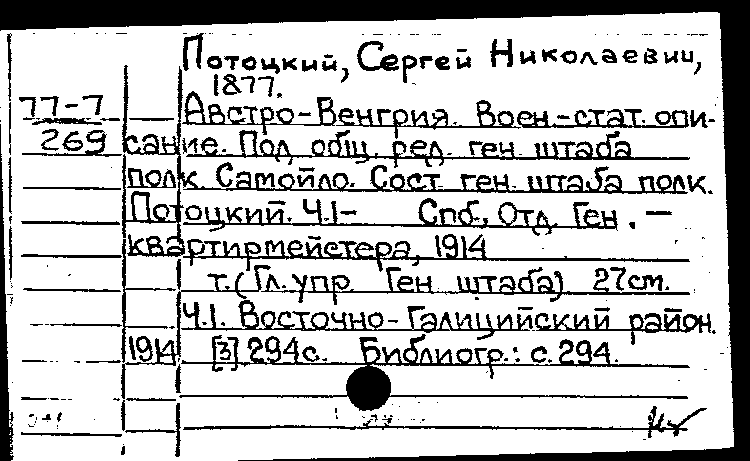 Потоцкий, Сергей Николаевич,
1877.
77-7
269
Австро-Венгрия. Воен.-стат. опи-
сание. Под общ. ред. ген. штаба
полк. Самойло. Сост. ген. штаба полк.
Потоцкий. Ч.1- Спб., Отд. Ген. —
квартирмейстера, 1914
т. (Гл. упр. Ген. штаба) 27см.
Ч.1. Восточно-Галицийский район.
1914 [3] 294с. Библиогр.: с. 294.